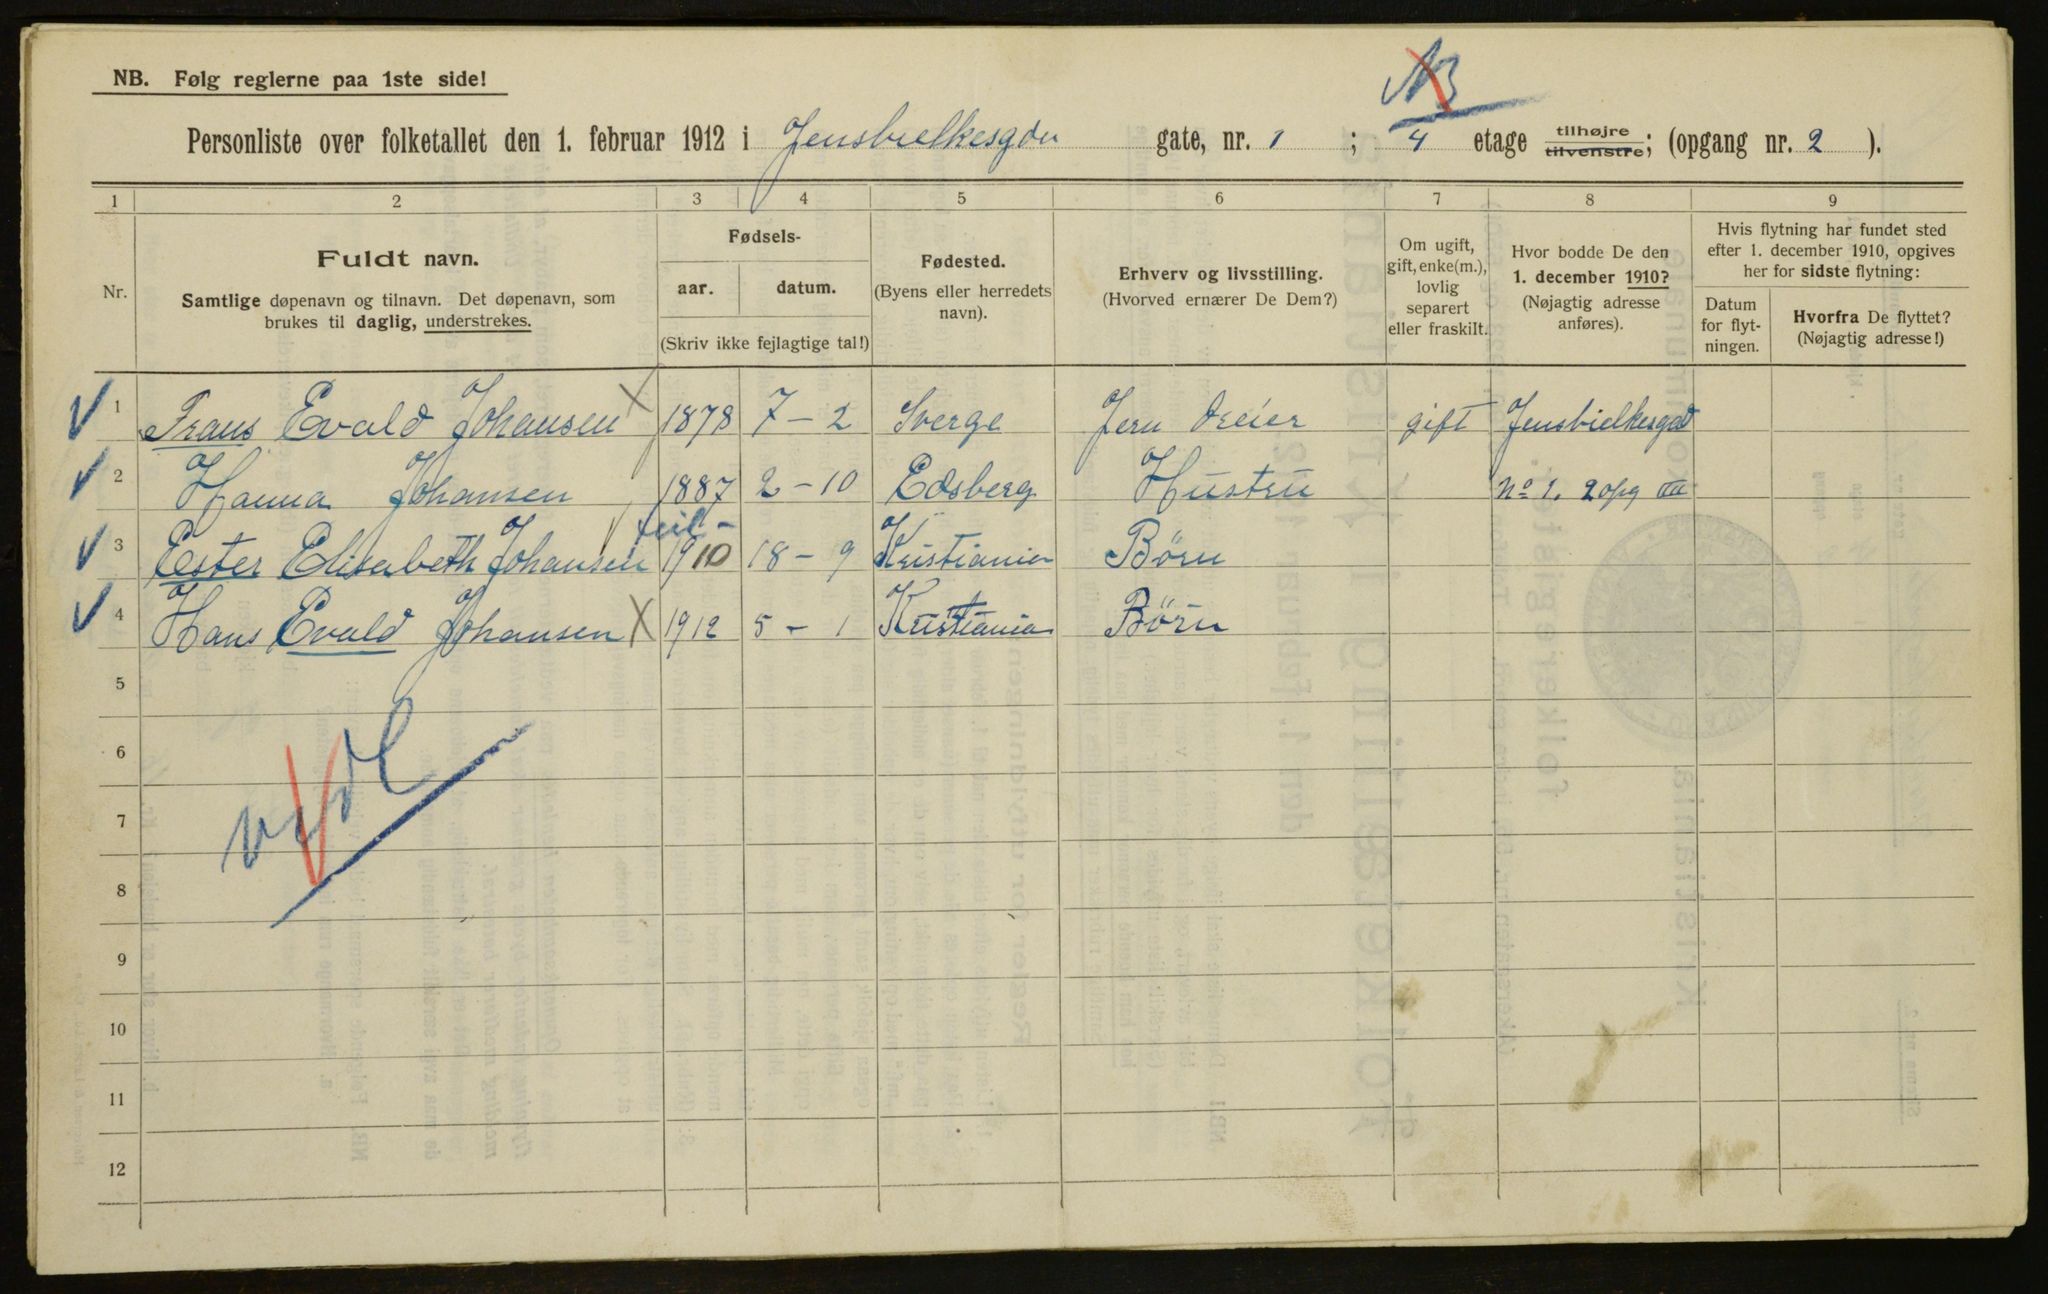 NB. Følg reglerne paa 1ste side!
NB
Personliste over folketallet den 1. februar 1912 i Jensbielkesgdn gate, nr. 1 ; 4 etage tilhøjre tilvenstre; (opgang nr. 2 ).
1 2 3 4 5 6 7 8 9
Nr.
Fuldt navn.
Samtlige døpenavn og tilnavn. Det døpenavn, som
brukes til daglig, understrekes.
Fødsels-
aar. datum.
(Skriv ikke fejlagtige tal!)
Fødested.
(Byens eller herredets
navn).
Erhverv og livsstilling.
(Hvorved ernærer De Dem?)
Om ugift,
gift, enke(m.),
lovlig
separert
eller fraskilt.
Hvor bodde De den
1. december 1910?
(Nøjagtig adresse
anføres).
Hvis flytning har fundet sted
efter 1. december 1910, opgives
her for sidste flytning:
Datum
for flyt-
ningen.
Hvorfra De flyttet?
(Nøjagtig adresse!)
1 Frans Evald Johansen 1878 7-2 Sverge Jern Dreier gift Jensbielkesgad
2 Hanna Johansen 1887 2-10 Edsberg Hustru No 1. 2 opg
feil-
3 Ester Elisabeth Johansen 1910 18-9 Kristiania Børn
4 Hans Evald Johansen 1912 5-1 Kristiania Børn
5
6
7
8
9
10
11
12